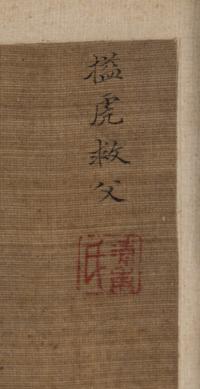 搤虎救父